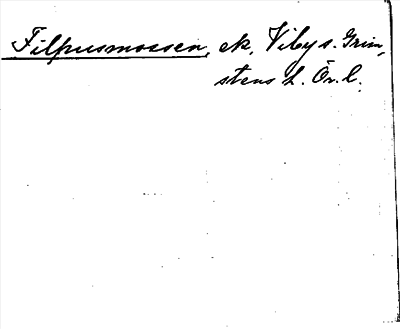 Filpusmossen, ek, Viby s. Grim,
stens h. Ör. l.